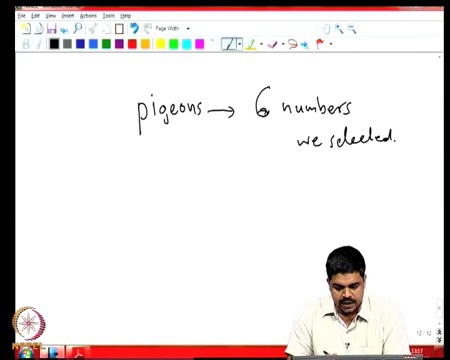 File Edit View Insert Actions Tools Help
Page Width
B I
pigeons → 6 numbers
we selected.
12 / 12
13:17